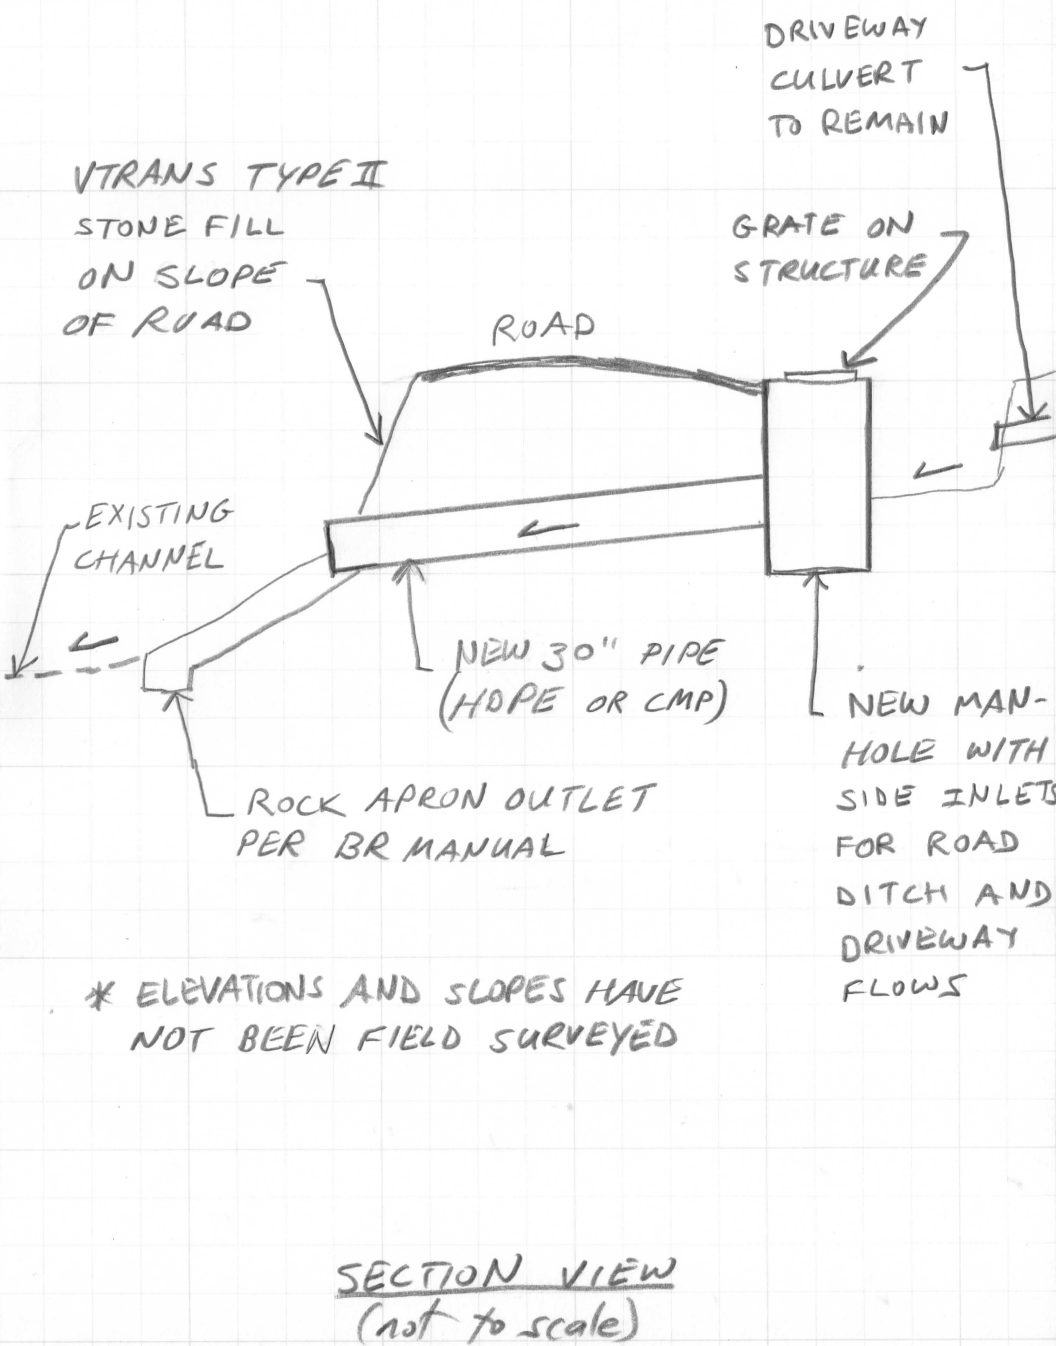 DRIVEWAY
CULVERT
TO REMAIN
VTRANS TYPE II
STONE FILL
ON SLOPE
OF ROAD
GRATE ON
STRUCTURE
ROAD
EXISTING
CHANNEL
NEW 30" PIPE
(HDPE OR CMP)
NEW MAN-
HOLE WITH
SIDE INLETS
FOR ROAD
DITCH AND
DRIVEWAY
FLOWS
ROCK APRON OUTLET
PER BR MANUAL
* ELEVATIONS AND SLOPES HAVE
NOT BEEN FIELD SURVEYED
SECTION VIEW
(not to scale)